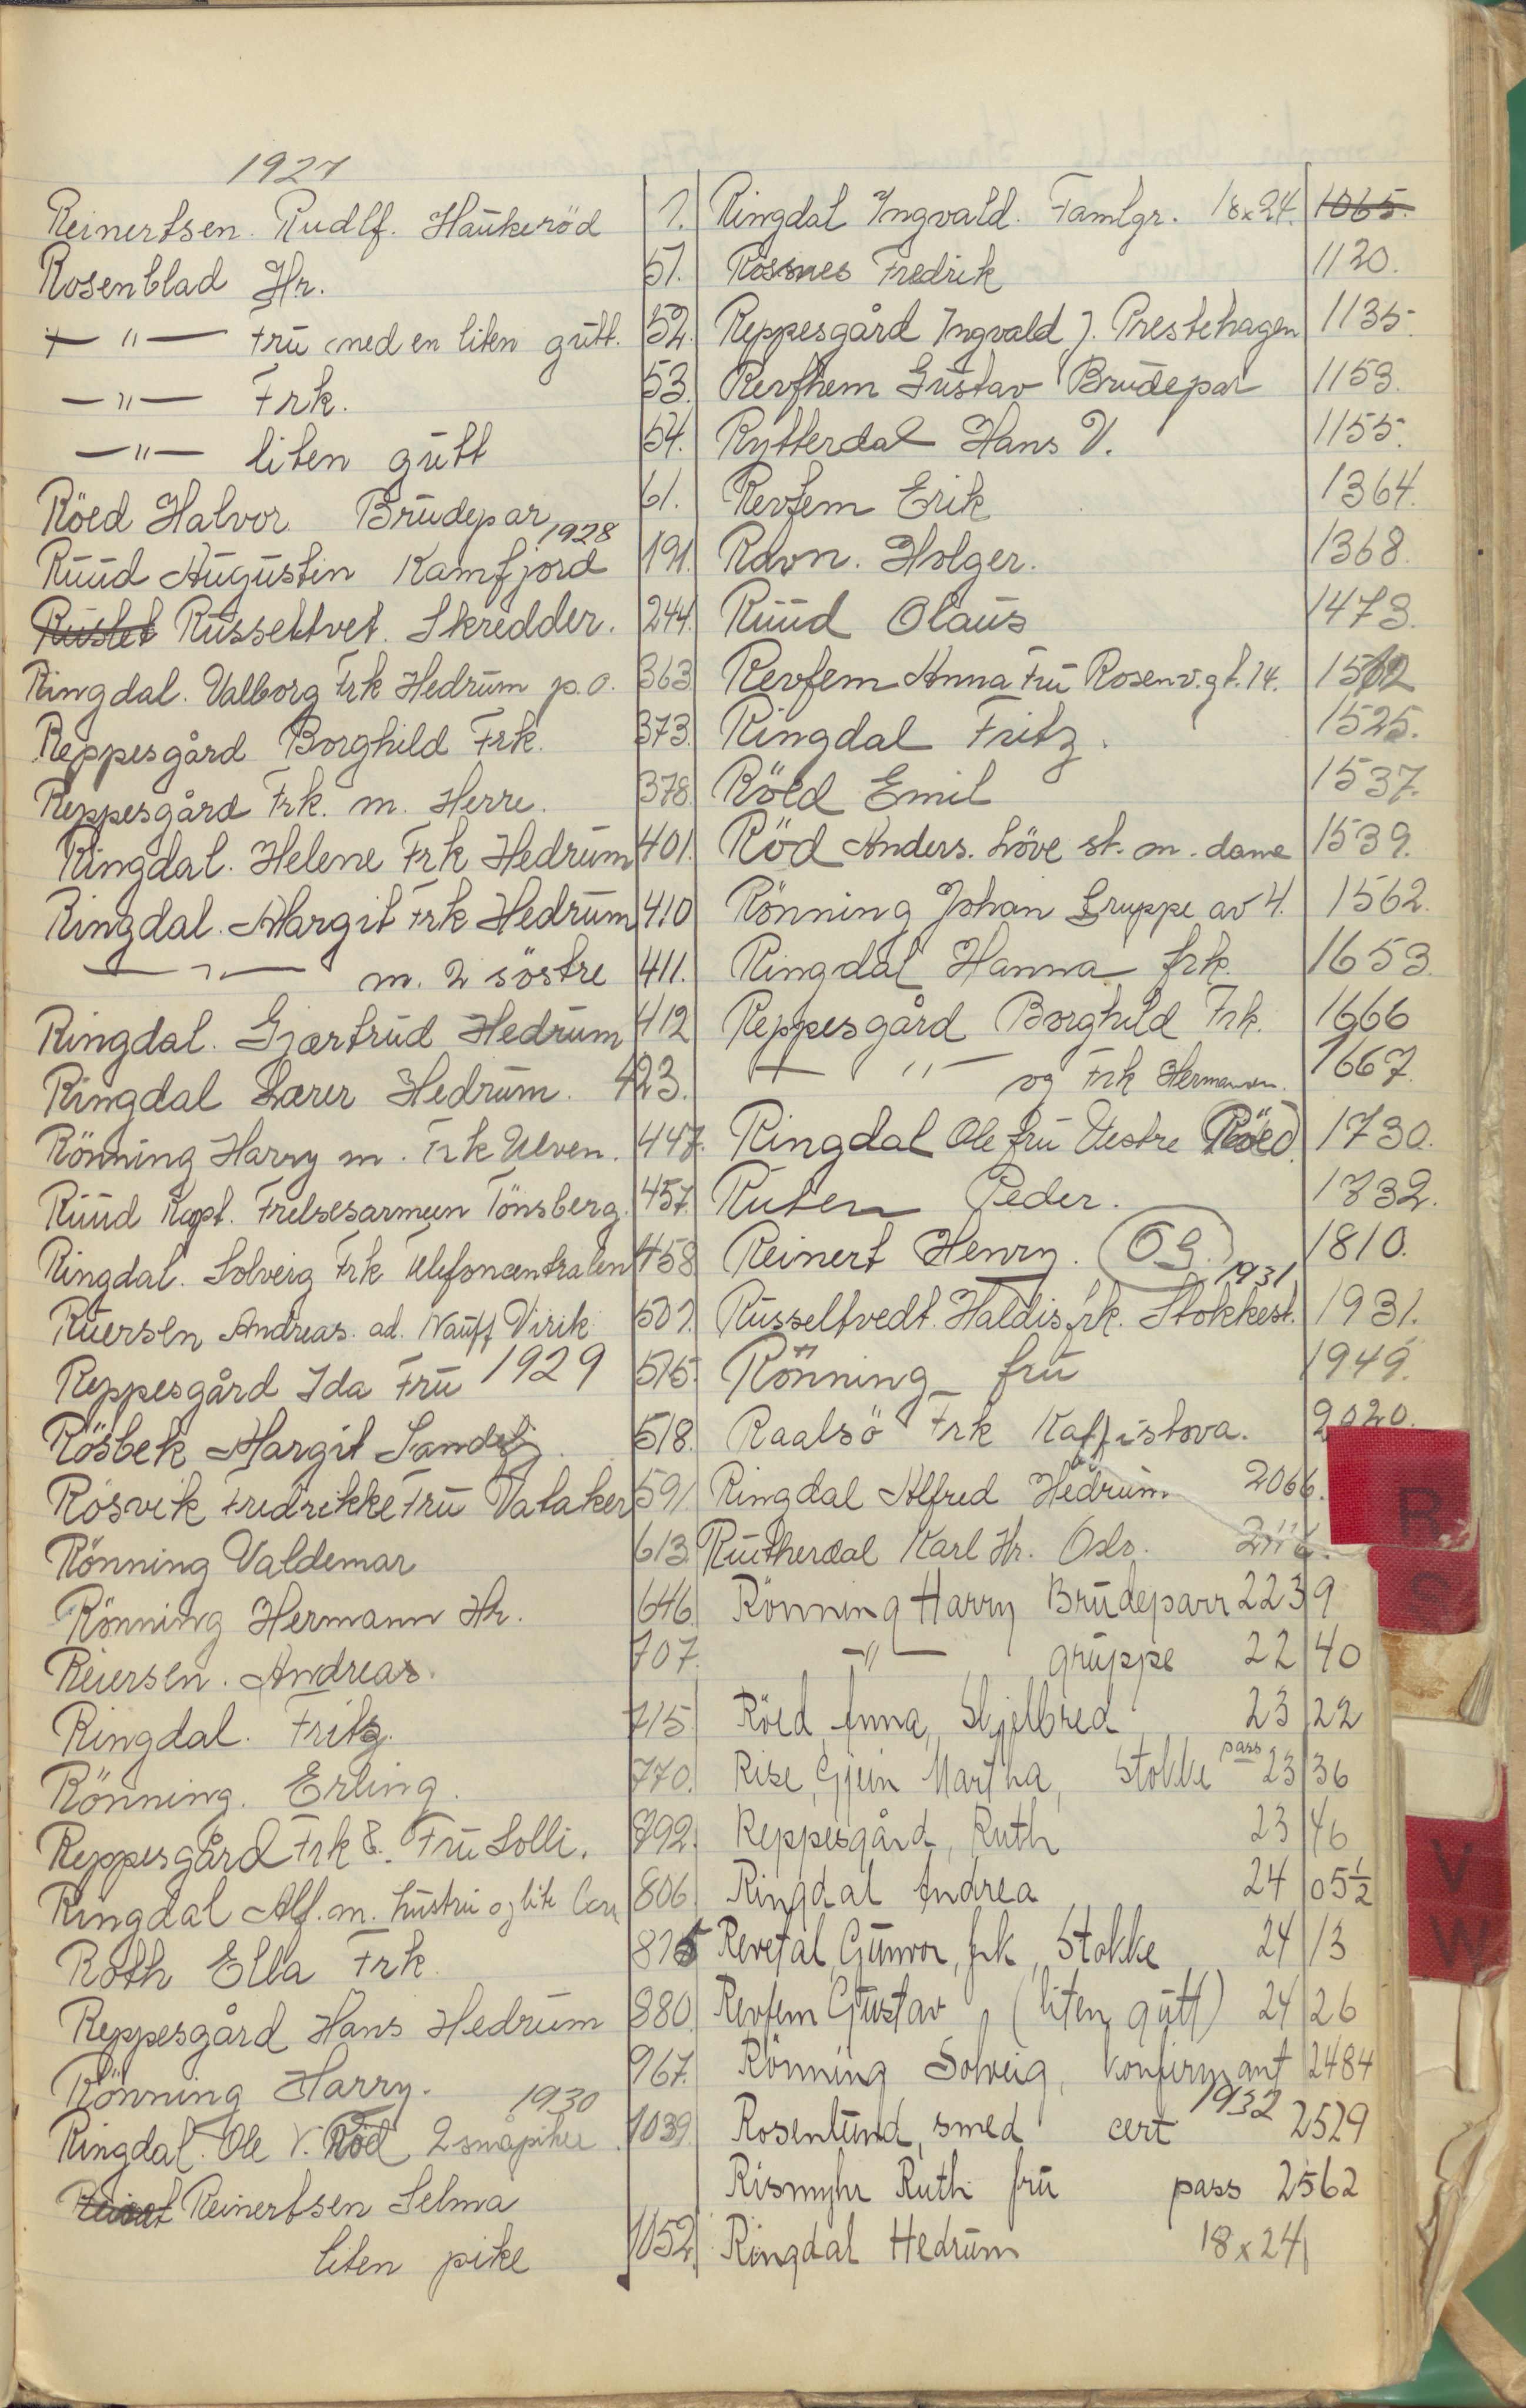 1927
Reinertsen. Rudlf. Haukeröd 1.
Rosenblad Hr. 51.
—"— Fru med en liten gutt. 52.
—"— Frk. 53.
—"— liten gutt 54.
Röed Halvor Brudepar 61.
1928
Ruud Augustin Kamfjord 191.
Russeltvet. Skredder. 244.
Ringdal. Valborg Frk Hedrum p.o. 363
Reppesgård Borghild Frk. 373.
Reppesgård Frk. m. Herre. 378.
Ringdal. Helene Frk Hedrum 401.
Ringdal. Margit Frk Hedrum 410
—"— m. 2 söstre 411.
Ringdal. Gjærtrud Hedrum 412
Ringdal Lærer Hedrum. 423.
Rönning Harry m. Frk Ulven. 447.
Ruud Kapt. Frelsesarmeen Tönsberg. 457.
Ringdal. Solveig Frk Telefoncentralen 458
Andreas. ad. Virik 501.
Reppesgård Ida Fru 1929 515.
Rösbek Margit 518.
Rösvik Fredrikke Fru Vataker 591
Rönning Valdemar 613
Rönning Hermann Hr. 646
Reiersen. Andreas. 707.
Ringdal. Fritz. 715
Rönning. Erling. 770.
Reppesgård Frk & Fru Solli. 792.
Ringdal Alf. m. hustru og lite 806
Roth Ella Frk 875
Reppesgård Hans Hedrum 880.
Rönning Harry. 967.
1930
Ringdal. Ole V. Röd 2 småpiker 1039.
Reinertsen Selma
liten pike 1052.
Ringdal Ingvald. Famlgr. 18x24. 1065.
Rossnes Fredrik 1120.
Reppesgård Ingvald J. Prestehagen 1135.
Revfhem Gustav Brudepar 1153.
Rytterdal Hans V. 1155.
Revfem Erik 1364.
Ravn. Holger. 1368.
Ruud Olaus 1473.
Revfem Anna Fru Rosenv.gt. 14. 1512
Ringdal Fritz. 1525.
Röed Emil 1537.
Röd Anders. Löve st. m. dame 1539.
Rönning Johan Gruppe av 4. 1562.
Ringdal Hanna frk. 1653.
Reppesgård Borghild Frk. 1666
—"— og Frk Hermansen. 1667.
Ringdal Ole fru Vestre Röed. 1730.
Ruten Peder. 1732.
Reinert Henry. OG. 1810.
1931
Russeltvedt. Haldis frk. Stokkest. 1931.
Rönning fru 1949.
Raalsö Frk Kaffistova. 2020.
Ringdal Alfred Hedrum 2066.
Rutherdal Karl Hr. Oslo. 2116.
Rönning Harry Brudeparr 2239
—"— gruppe 2240
Röed Anna, Skjelbred 2322
Rise, Gjein Martha, Stokke pass 2336
Reppesgård, Ruth 2346
Ringdal Andrea 2405½
Revetal, Gunvor, frk, Stokke 2413
Revfem Gustav, (liten gutt) 2426
Rönning Solveig, konfirmant 2484
1932
Rosenlund, smed cert 2529
Rismyhr Ruth fru pass 2562
Ringdal Hedrum 18x24
R
S
V
W